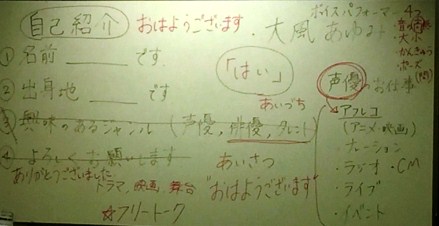 自己紹介 おはようございます
・大風 あゆみ
ボイスパフォーマー 4つ
大小
かんきゅう
ポーズ
① 名前 ______ です
② 出身地 ______ です
③ 興味のあるジャンル (声優, 俳優, タレント)
④ よろしくお願いします
ありがとうございました
ドラマ, 映画, 舞台
☆フリートーク
「はい」
あいづち
あいさつ
"おはようございます"
声優のお仕事
・アフレコ
(アニメ・映画)
・ナレーション
・ラジオ・CM
・ライブ
・イベント